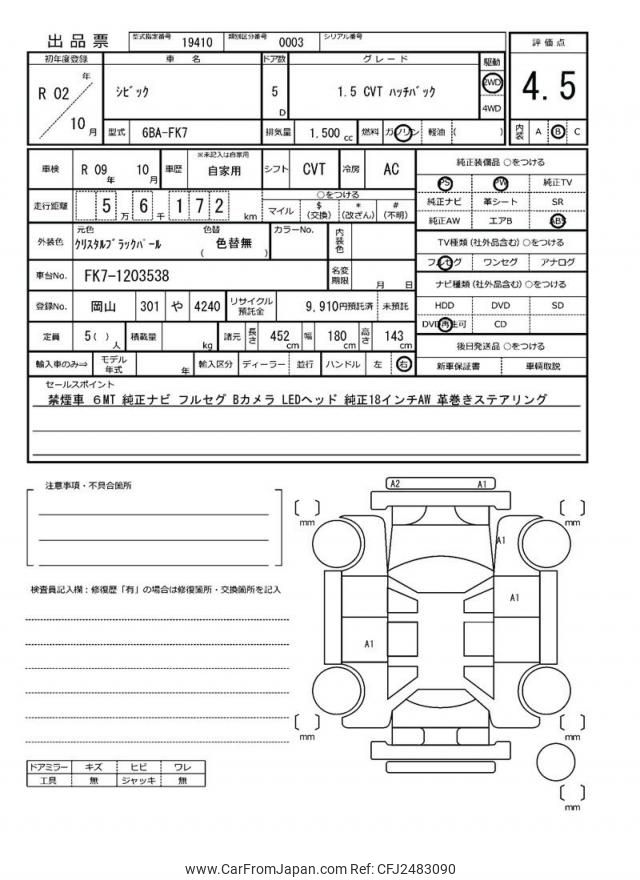 出品票 型式指定番号 19410 類別区分番号 0003 シリアル番号
初年度登録 車名 ドア数 グレード 駆動 評価点
R 02 年 10 月 シビック 5 D 1.5 CVT ハッチバック 2WD 4WD 4.5
型式 6BA-FK7 排気量 1.500 cc 燃料 ガソリン 軽油 ( ) 内装 A B C
車検 R 09 年 10 月 車歴 ※未記入は自家用 自家用 シフト CVT 冷房 AC
純正装備品 ○をつける
PS PW 純正TV
走行距離 5 万 6 千 1 7 2 km ○をつける
マイル $ (交換) * (改ざん) # (不明)
純正ナビ 革シート SR
純正AW エアB ABS
外装色 元色 クリスタルブラックパール 色替 ( 色替無 ) カラーNo. 内装色
TV種類 (社外品含む) ○をつける
フルセグ ワンセグ アナログ
車台No. FK7-1203538 名変期限 月 日
ナビ種類 (社外品含む) ○をつける
登録No. 岡山 301 や 4240 リサイクル預託金 9,910円預託済 未預託
HDD DVD SD
DVD再生可 CD
定員 5 ( ) 人 積載量 kg 諸元 長さ 452 cm 幅 180 cm 高さ 143 cm
後日発送品 ○をつける
輸入車のみ⇒ モデル年式 年 輸入区分 ディーラー 並行 ハンドル 左 右
新車保証書 車輌取説
セールスポイント
禁煙車 6MT 純正ナビ フルセグ Bカメラ LEDヘッド 純正18インチAW 革巻きステアリング
注意事項・不具合箇所
A2 A1
mm mm
A1
検査員記入欄：修復歴「有」の場合は修復箇所・交換箇所を記入
A1
A1
mm mm
ドアミラー キズ ヒビ ワレ
工具 無 ジャッキ 無
mm
www.CarFromJapan.com Ref: CFJ2483090